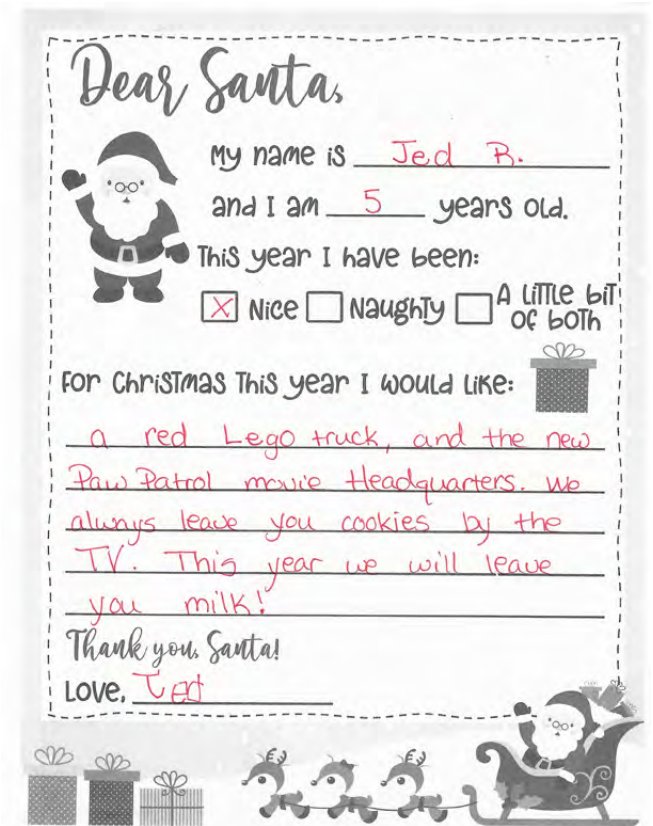 Dear Santa,
My name is Jed R.
and I am 5 years old.
This year I have been:
X Nice Naughty A little bit of both
For Christmas this year I would like:
a red Lego truck, and the new
Paw Patrol movie Headquarters. We
always leave you cookies by the
TV. This year we will leave
you milk!
Thank you, Santa!
Love, Jed